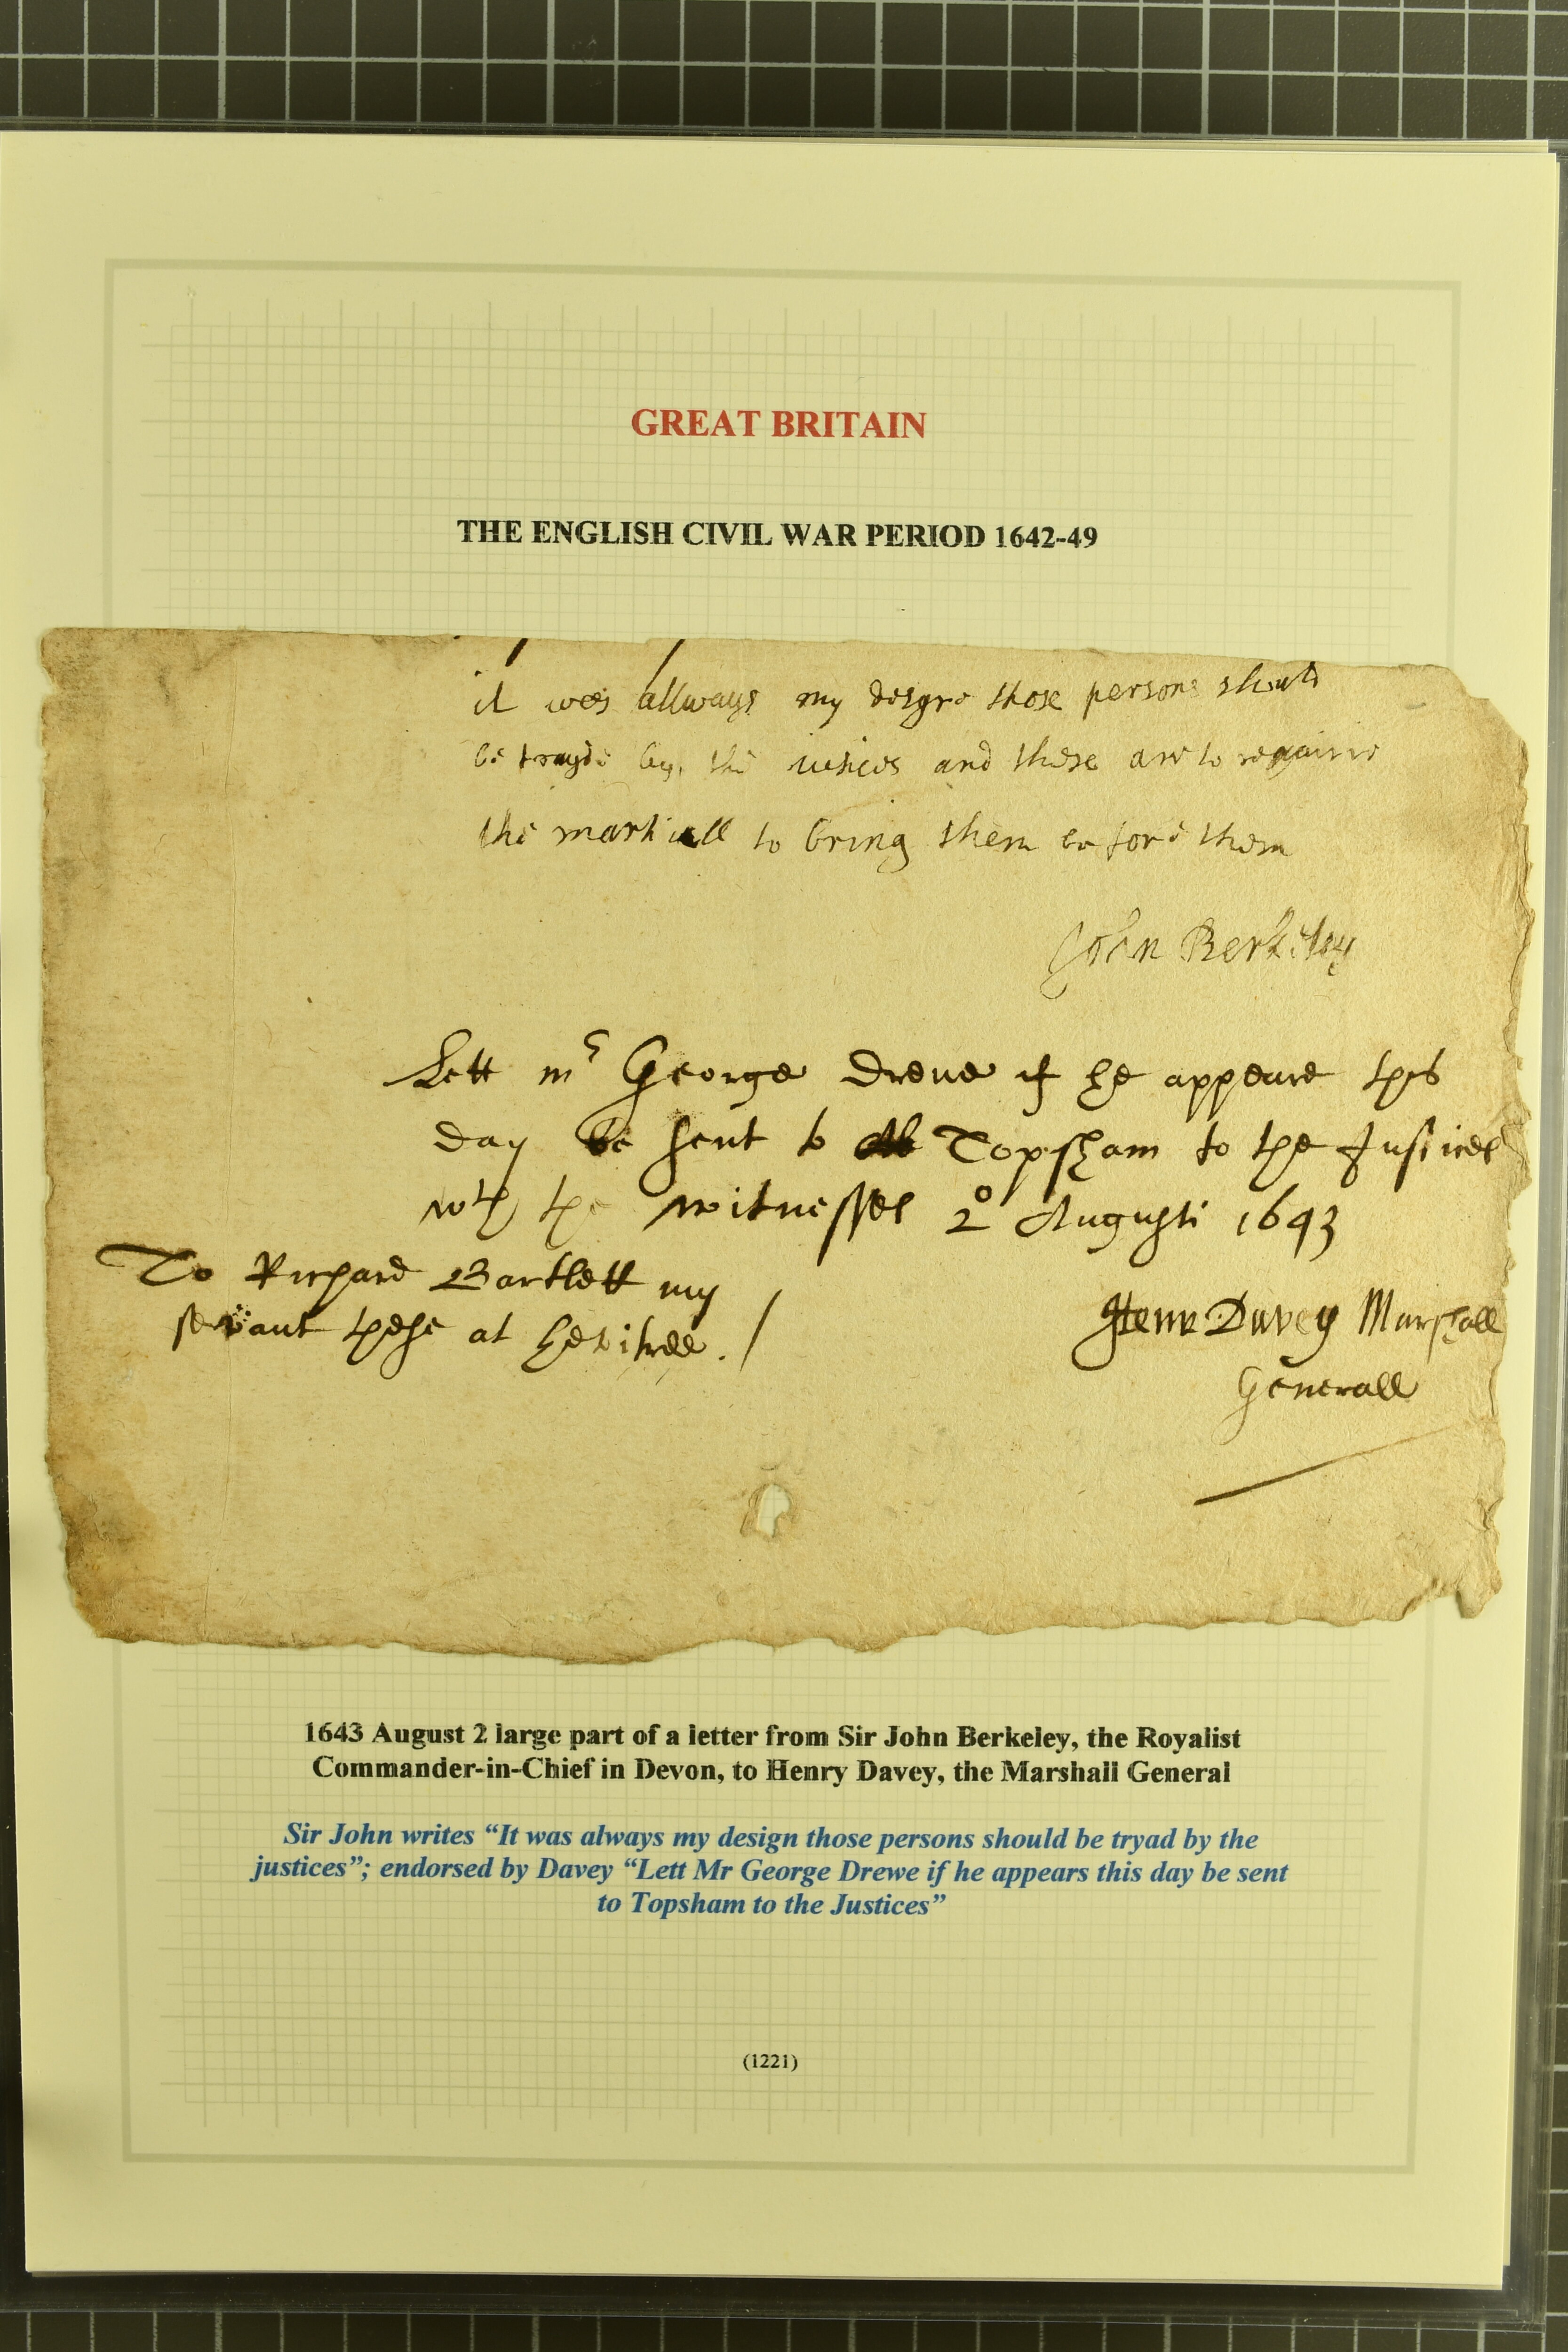 GREAT BRITAIN
THE ENGLISH CIVIL WAR PERIOD 1642-49
it was allways my desyre those persons should
be trayde by the iustices and these are to requiire
the martiall to bring them before them
John Berkeley
Lett mr George Drewe if he appeare this
day be sent to Topsham to the Justices
wth the witnesses 2o Augusti 1643
To Richard Bartlett my
servant these at hevitree . /
Henr Davey Marshall
Generall
1643 August 2 large part of a letter from Sir John Berkeley, the Royalist
Commander-in-Chief in Devon, to Henry Davey, the Marshall General
Sir John writes “It was always my design those persons should be tryad by the
justices”; endorsed by Davey “Lett Mr George Drewe if he appears this day be sent
to Topsham to the Justices”
(1221)